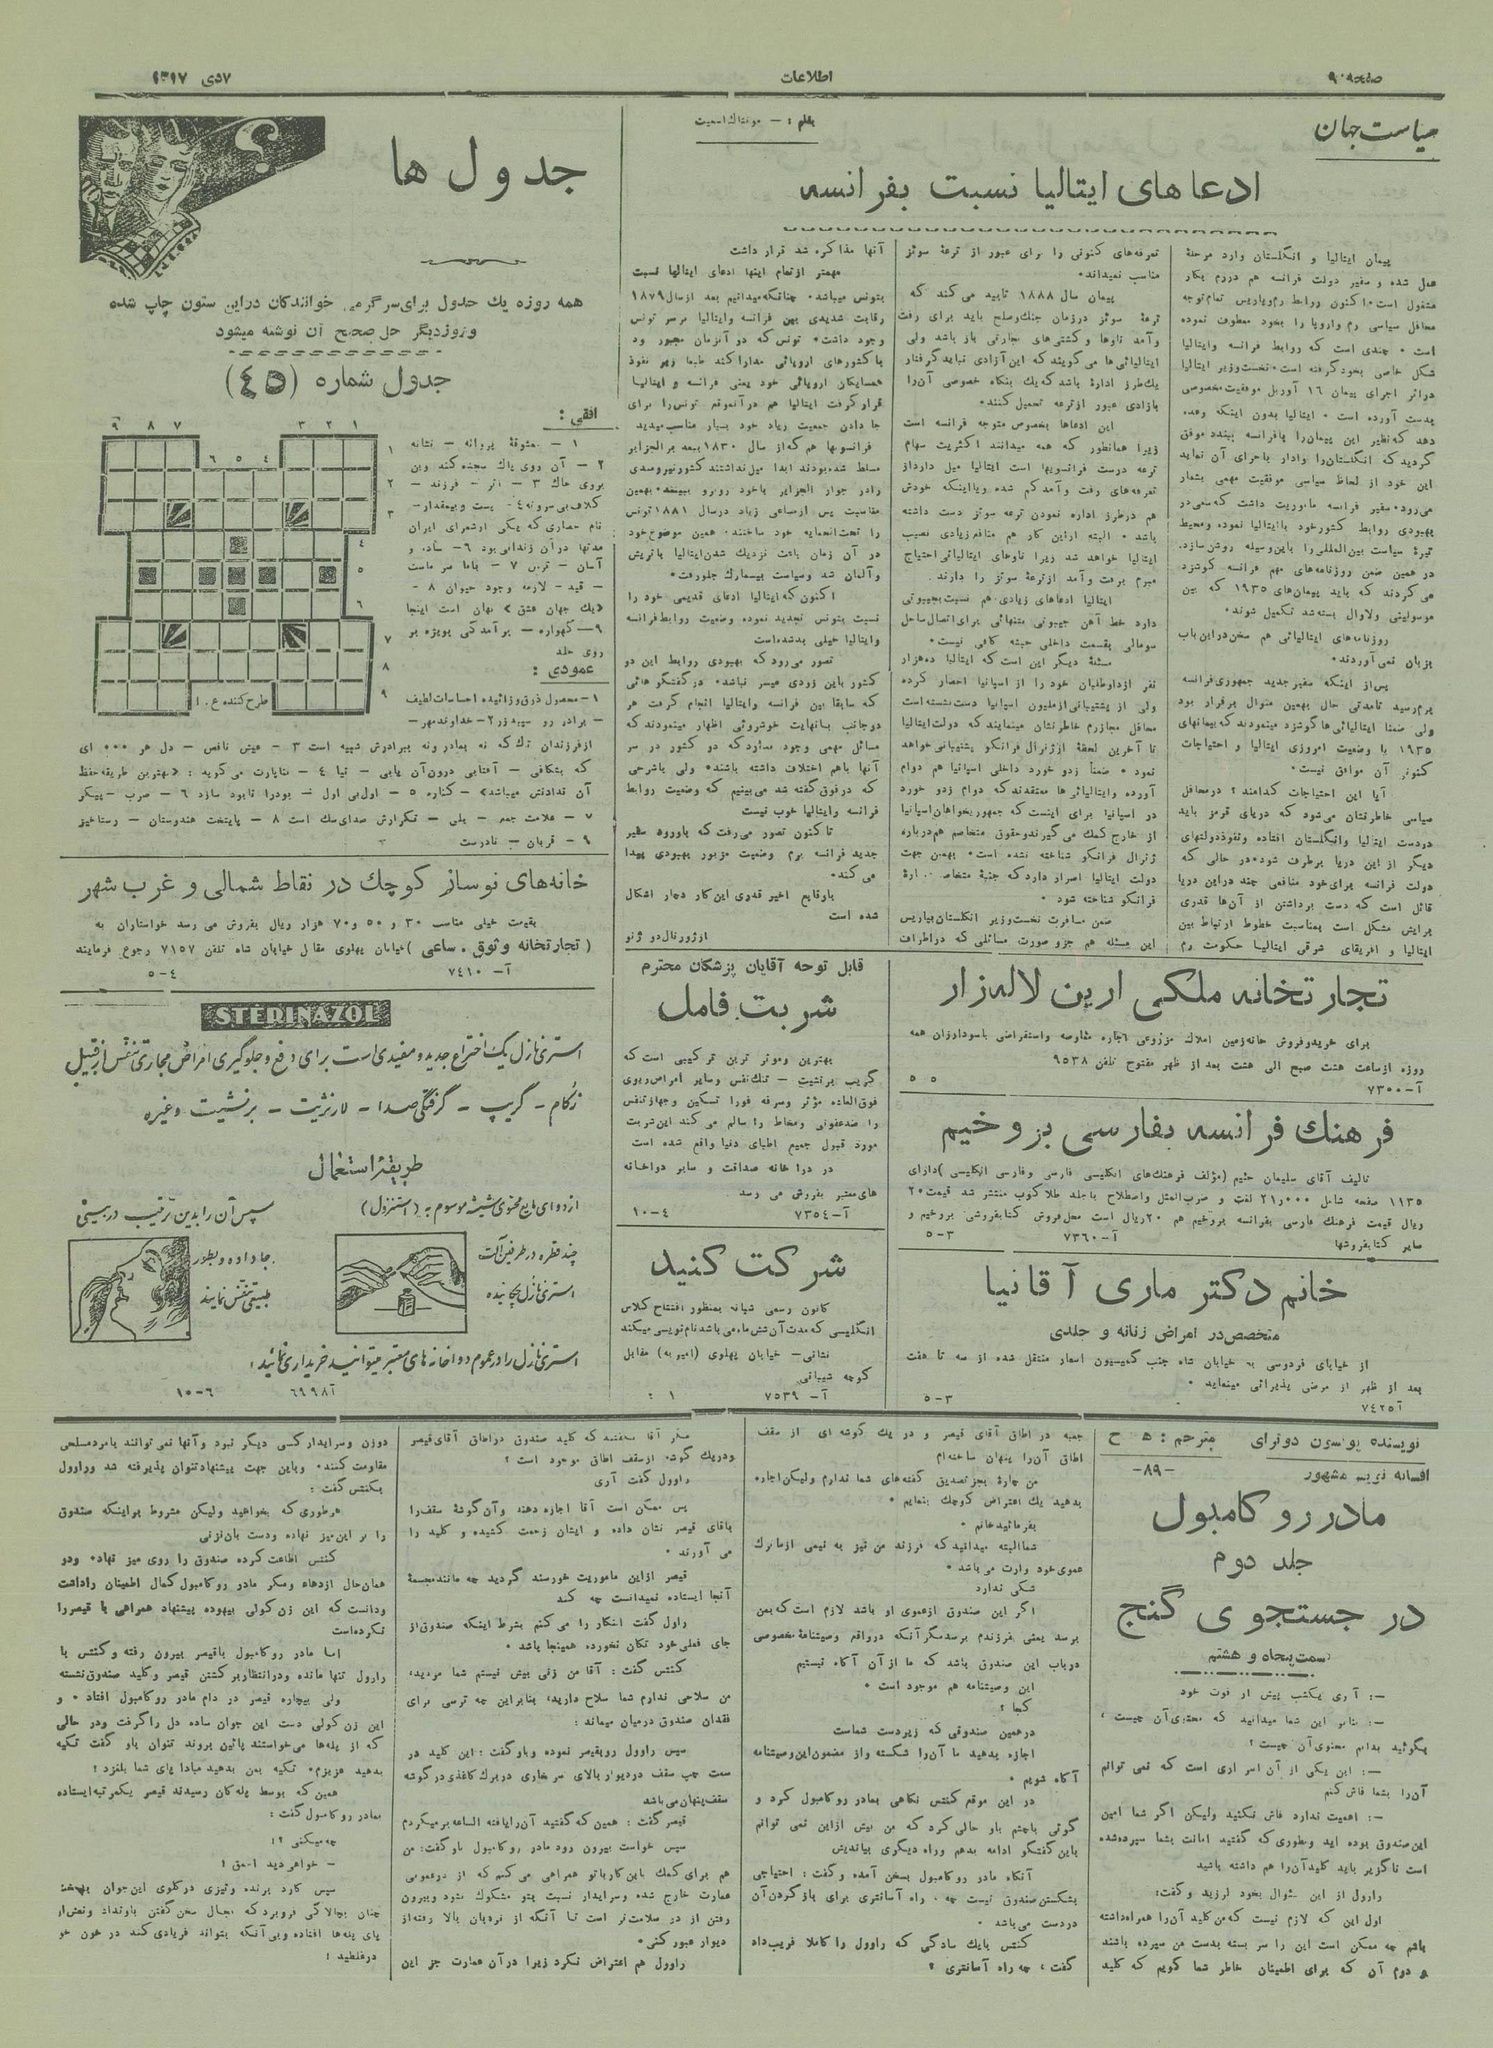 صفحه ۹
اطلاعات
۷ دی ۱۳۱۷
سیاست جهان
ادعاهای ایتالیا نسبت بفرانسه
پیمان ایتالیا و انگلستان وارد مرحلهٔ
عمل شده و سفیر دولت فرانسه هم دررم بکار
محافل سیاسی رم واروپا را بخود معطوف نموده
است ۰ چندی است که روابط فرانسه وایتالیا
شکل خاصی بخود گرفته است ۰ نخست وزیر ایتالیا
دراثر اجرای پیمان ۱۶ آوریل موفقیت مخصوصی
بدست آورده است ۰ ایتالیا بدون اینکه وعده
دهد که نظیر این پیمان را بافرانسه ببندد موفق
گردید که انگلستان را وادار باجرای آن نماید
این خود از لحاظ سیاسی موفقیت مهمی بشمار
میرود۰ سفیر فرانسه ماموریت داشت که سعی در
بهبودی روابط کشور خود باایتالیا نموده ومحیط
تیرهٔ سیاست بین المللی را باین وسیله روشن سازد۰
در همین ضمن روزنامه‌های مهم فرانسه گوشزد
می کردند که باید پیمان‌های ۱۹۳۵ که بین
موسولینی ولاوال بسته شد تکمیل شوند ۰
روزنامه‌های ایتالیائی هم سخن دراین باب
بزبان نمی آوردند۰
پس از اینکه سفیر جدید جمهوری فرانسه
برم رسید تامدتی حال بهمین منوال برقرار بود
ولی ضمنا ایتالیائی‌ها گوشزد مینمودند که پیمانهای
۱۹۳۵ با وضعیت امروزی ایتالیا و احتیاجات
کنونی آن موافق نیست ۰
آیا این احتیاجات کدامند ؟ درمحافل
سیاسی خاطرنشان می‌شود که دریای قرمز باید
دردست ایتالیا وانگلستان افتاده ونفوذ دولتهای
دیگر از این دریا برطرف شود۰ در حالی که
دولت فرانسه برای خود منافعی چند دراین دریا
قائل است که دست برداشتن از آن‌ها قدری
برایش مشکل است بمناسبت خطوط ارتباط بین
ایتالیا و افریقای شرقی ایتالیا حکومت رم
تعرفه‌های کنونی را برای عبور از ترعهٔ سوئز
مناسب نمیداند۰
پیمان سال ۱۸۸۸ تایید می کند که
ترعهٔ سوئز درزمان جنك وصلح باید برای رفت
وآمد ناوها وکشتی‌های تجارتی باز باشد ولی
ایتالیائی‌ها می گویند که این آزادی نباید گرفتار
یك طرز ادارهٔ باشد که یك بنگاه خصوصی آن را
بازادی عبور ازترعه تحمیل کنند۰
این ادعاها بخصوص متوجه فرانسه است
زیرا همانطور که همه میدانند اکثریت سهام
ترعه درست فرانسویها است ایتالیا میل دارد از
تعرفه‌های رفت وآمد کم شده ویا اینکه خودش
هم درطرز اداره نمودن ترعه سوئز دست داشته
باشد ۰ البته ازاین کار هم منافع زیادی نصیب
ایتالیا خواهد شد زیرا ناوهای ایتالیائی احتیاج
مبرم برفت وآمد ازترعهٔ سوئز را دارند۰
ایتالیا ادعاهای زیادی هم نسبت بجیبوتی
دارد خط آهن جیبوتی منتهائی برای اتصال ساحل
سومالی بقسمت داخلی حبشه کافی نیست۰
مسئلهٔ دیگر این است که ایتالیا ده هزار
نفر ازداوطلبان خود را از اسپانیا احضار کرده
ولی از پشتیبانی ازملیون اسپانیا دست نشسته است
محافل مجازرم خاطرنشان مینمایند که دولت ایتالیا
تا آخرین لحظهٔ ازژنرال فرانکو پشتیبانی خواهد
نمود ۰ ضمناً زدو خورد داخلی اسپانیا هم دوام
آورده وایتالیائی‌ها معتقدند که دوام زدو خورد
در اسپانیا برای اینست که جمهوریخواهان اسپانیا
از خارج کمك می گیرند وحقوق متخاصم هم درباره
ژنرال فرانکو شناخته نشده است۰ بهمین جهت
فرانکو شناخته شود ۰
ضمن مسافرت نخست وزیر انگلستان بپاریس
این مسئله هم جزو صورت مسائلی که در اطراف
آنها مذاکره شد قرار داشت
مهمتر ازتمام اینها ادعای ایتالیا نسبت
بتونس میباشد۰ چنانکه میدانیم بعد از سال ۱۸۷۹
رقابت شدیدی بین فرانسه وایتالیا برسر تونس
وجود داشت۰ تونس که در آنزمان مجبور بود
باکشورهای اروپائی مدارا کند طبعا زیر نفوذ
همسایگان اروپائی خود یعنی فرانسه و ایتالیا
قرار گرفت ایتالیا هم در آنموقع تونس را برای
جا دادن جمعیت زیاد خود بسیار مناسب میدید
فرانسویها هم که از سال ۱۸۳۰ ببعد برالجزایر
مسلط شده بودند ابدا میل نداشتند کشور نیرومندی
رادر جوار الجزایر باخود روبرو ببینند۰ بهمین
مناسبت پس ازمساعی زیاد درسال ۱۸۸۱ تونس
را تحت الحمایه خود ساختند۰ همین موضوع خود
در آن زمان باعث نزدیك شدن ایتالیا باتریش
وآلمان شد وسیاست بیسمارك جلو رفت۰
اکنون که ایتالیا ادعای قدیمی خود را
نسبت بتونس تجدید نموده وضعیت روابط فرانسه
وایتالیا خیلی بد شده است
تصور می‌رود که بهبودی روابط این دو
کشور باین زودی میسر نباشد۰ درگفتگوهائی
که سابقا بین فرانسه وایتالیا انجام گرفت هر
دوجانب بانهایت خوشروئی اظهار مینمودند که
مسائل مهمی وجود ندارد که دو کشور در سر
آنها باهم اختلاف داشته باشند۰ ولی باشرحی
که درفوق گفته شد می‌بینیم که وضعیت روابط
فرانسه وایتالیا خوب نیست
تاکنون تصور می‌رفت که باورود سفیر
جدید فرانسه برم وضعیت مزبور بهبودی پیدا
می کند۰
باوقایع اخیر قدری این کار دچار اشکال
شده است
ازژورنال دو ژنو
جدول ها
همه روزه یك جدول برای سرگرمی خوانندکان دراین ستون چاپ شده
وروز دیگر حل صحیح آن نوشته میشود
جدول شماره (۴۵)
افقی :
۱ – معشوقهٔ پروانه – نشانه
۲ – آن روی پاك سجده کند وین
بروی خاك ۳ – اثر – فرزند –
نام حصاری که یکی ازشعرای ایران
روی جلد
۱ ۲ ۳ ۴ ۵ ۶ ۷ ۸ ۹
۱
۲
۳
۴
۵
۶
۷
۸
۹
طرح کننده ع . ا
عمودی :
۱– محصول ذوق وزائیده احساسات لطیف
خانه‌های نوساز کوچك در نقاط شمالی و غرب شهر
بقیمت خیلی مناسب ۳۰ و ۵۰ و ۷۰ هزار ریال بفروش می رسد خواستاران به
( تجارتخانه وثوق . ساعی ) خیابان پهلوی مقابل خیابان شاه تلفن ۷۱۵۷ رجوع فرمایند
آ– ۷۴۱۰
۵–۴
STERINAZOL
استری نازل یك اختراع جدید و مفیدی است برای دفع و جلوگیری امراض مجاری تنفس از قبیل
زکام – گریپ – گرفتگی صدا – لارنژیت – برنشیت وغیره
طریقهٔ استعمال
از دوای مایع محتوی شیشه موسوم به (مستنزول)
چند قطره در طرفین آلت
استری نازل چکانیده
سپس آن را بدین ترتیب در بینی
جا داده و بطور
طبیعی تنفس نمایند
استری نازل را در عموم دواخانه های معتبر میتوانید خریداری نمائید :
آ ۶۹۹۸
۱۰–۶
قابل توجه آقایان پزشکان محترم
شربت فامل
بهترین وموثر ترین ترکیبی است که
گریپ برنشیت – تنك نفس وسایر امراض ریوی
فوق العاده مؤثر وسرفه فورا تسکین وجهاز تنفس
را ضدعفونی ومخاط را سالم می کند این شربت
مورد قبول جمیع اطبای دنیا واقع شده است
در دوا خانه صداقت و سایر دواخانه
های معتبر بفروش می رسد
آ–۷۳۵۴
۱۰–۴
شرکت کنید
کانون رسمی شبانه بمنظور افتتاح کلاس
انگلیسی که مدت آن شش ماه می باشد نام نویسی میکند
نشانی– خیابان پهلوی (امیریه) مقابل
کوچه شیبانی
آ– ۷۵۳۹
تجارتخانه ملکی ارین لاله‌زار
برای خرید وفروش خانه زمین املاك مزروعی اجاره مقاوصه واستقراضی باسود ارزان همه
روزه ازساعت هشت صبح الی هشت بعد از ظهر مفتوح تلفن ۹۵۳۸
آ– ۷۳۰۰
۵ ۵
فرهنك فرانسه بفارسی بروخیم
تالیف آقای سلیمان حئیم (مؤلف فرهنك‌های انگلیسی فارسی وفارسی انگلیسی) دارای
۱۱۳۵ صفحه شامل ۲۱٫۰۰۰ لغت و ضرب المثل واصطلاح باجلد طلاکوب منتشر شد قیمت ۲۰
ریال قیمت فرهنك فارسی بفرانسه بروخیم هم ۲۰ ریال است محل فروش کتابفروشی بروخیم و
سایر کتابفروشها
آ–۷۳۶۰
۵–۳
خانم دکتر ماری آقانیا
متخصص در امراض زنانه و جلدی
از خیابای فردوسی به خیابان شاه جنب کمیسیون اسعار منتقل شده از سه تا هفت
بعد از ظهر از مرضی پذیرائی مینماید ۰
آ۷۴۲۵
۵–۳
مترجم : ه ح
–۸۹–
مادر روکامبول
جلد دوم
در جستجوی گنج
قسمت پنجاه و هشتم
–: آری یکشب پیش از فوت خود
–: بنابر این شما میدانید که محتوی آن چیست ؟
بگوئید بدانم محتوی آن چیست ؟
–: این یکی از آن اسراری است که نمی توانم
آن را بشما فاش کنم
–: اهمیت ندارد فاش نکنید ولیکن اگر شما امین
این صندوق بوده اید وبطوری که گفتید امانت بشما سپرده شده
است ناگزیر باید کلید آن را هم داشته باشید
رارول از این سئوال بخود لرزید وگفت:
اول این که لازم نیست که من کلید آن را همراه داشته
باشم چه ممکن است این را سر بسته بدست من سپرده باشند
و دوم آن که برای اطمینان خاطر شما گویم که کلید
جعبه در اطاق آقای قیصر و در یك گوشه ای از سقف
اطاق آن را پنهان ساخته‌ام
من چارهٔ بجز تصدیق گفته‌های شما ندارم ولیکن اجازه
بدهید یك اعتراض کوچك بنمایم ۰
بفرمائید خانم ۰
شما البته میدانید که فرزند من نیز به نیمی ازماترك
عموی خود وارث می باشد ۰
شکی ندارد
اگر این صندوق ازعموی او باشد لازم است که بمن
برسد یعنی بفرزندم برسد مگر آنکه درواقع وصیتنامهٔ مخصوصی
درباب این صندوق باشد که ما از آن آگاه نیستیم
این وصیتنامه هم موجود است ۰
کجا ؟
درهمین صندوقی که زیردست شماست
اجازه بدهید ما آن را شکسته واز مضمون این وصیتنامه
آگاه شویم ۰
در این موقع کنتس نگاهی بمادر روکامبول کرد و
گوئی باچشم باو حالی کرد که من بیش ازاین نمی توانم
باین گفتگو ادامه بدهم وراه دیگری بیاندیش
آنگاه مادر روکامبول بسخن آمده وگفت : احتیاجی
بشکستن صندوق نیست چه ، راه آسانتری برای باز کردن آن
دردست می‌باشد ۰
کنتس بایك سادگی که راوول را کاملا فریب داد
گفت ؛ چه راه آسانتری ؟
مگر آقا نگفتند که کلید صندوق دراطاق آقای قیصر
ودریك گوشه ازسقف اطاق موجود است ؟
راوول گفت آری
پس ممکن است آقا اجازه دهند وآن گوشهٔ سقف را
باقای قیصر نشان داده و ایشان زحمت کشیده و کلید را
می آورند ۰
قیصر ازاین ماموریت خورسند گردید چه مانند مجسمهٔ
آنجا ایستاده نمیدانست چه کند
راول گفت اینکار را می کنم بشرط اینکه صندوق از
جای فعلی خود تکان نخورده همینجا باشد ۰
کنتس گفت : آقا من زنی بیش نیستم شما مردید،
من سلاحی ندارم شما سلاح دارید، بنابراین چه ترسی برای
فقدان صندوق درمیان میماند :
سپس راوول روبقیصر نموده وباو گفت : این کلید در
سمت چپ سقف دردیوار بالای سر بخاری دریرك کاغذی درگوشه
سقف پنهان می‌باشد
قیصر گفت : همین که گفتید آن را یافته الساعه برمیگردم
سپس خواست بیرون رود مادر روکامبول باو گفت: من
هم برای کمك باین کار باتو همراهی می کنم که از درعمومی
عمارت خارج شده وسرایدار نسبت بتو مشکوك نشود وبیرون
رفتن از در سلامت‌تر است تا آنکه از نردبان بالا رفته از
دیوار عبور کنی۰
راوول هم اعتراض نکرد زیرا درآن عمارت جز این
دوزن وسرایدار کسی دیگر نبود وآنها نمی توانند بامرد مسلحی
مقاومت کنند۰ وباین جهت پیشنهاد تنوان پذیرفته شد وراوول
بکنتس گفت :
هرطوری که بخواهید ولیکن مشروط براینکه صندوق
را بر این میز نهاده ودست بان نزنی
کنتس اطاعت کرده صندوق را روی میز نهاد۰ ودو
ودانست که این زن کولی بیهوده پیشنهاد همراهی با قیصر را
نکرده است
اما مادر روکامبول باقیصر بیرون رفته وکنتس با
رارول تنها مانده ودرانتظار برگشتن قیصر وکلید صندوق نشسته
ولی بیچاره قیصر در دام مادر روکامبول افتاد ۰ و
این زن کولی دست این جوان ساده دل را گرفت ودر حالی
که از پله‌ها می‌خواستند پائین بروند تنوان باو گفت تکیه
بدهید عزیزم۰ تکیه بمن بدهید مبادا پای شما بلغزد !
همین که بوسط پله‌کان رسیدند قیصر یکمرتبه ایستاده
بمادر روکامبول گفت :
چه میکنی ؟ !
– خواهی دید احمق !
سپس کارد برنده وتیزی درگلوی این جوان بهشت
چنان بچالاکی فروبرد که مجال سخن گفتن باو نداد ونعش از
پای پله‌ها افتاده وبی آنکه بتواند فریادی کند در خون خو
درغلطید !